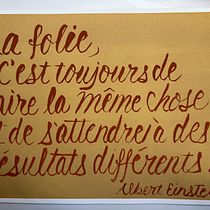 a folie,
C'est toujours de
aire la même chose
t de s'attendre à des
ésultats différents
Albert Einste